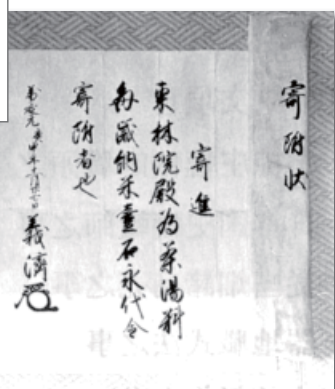 寄附状
寄進
東林院殿為茶湯料
毎歳納米壹石永代令
寄附者也
萬延元庚申年 義濟